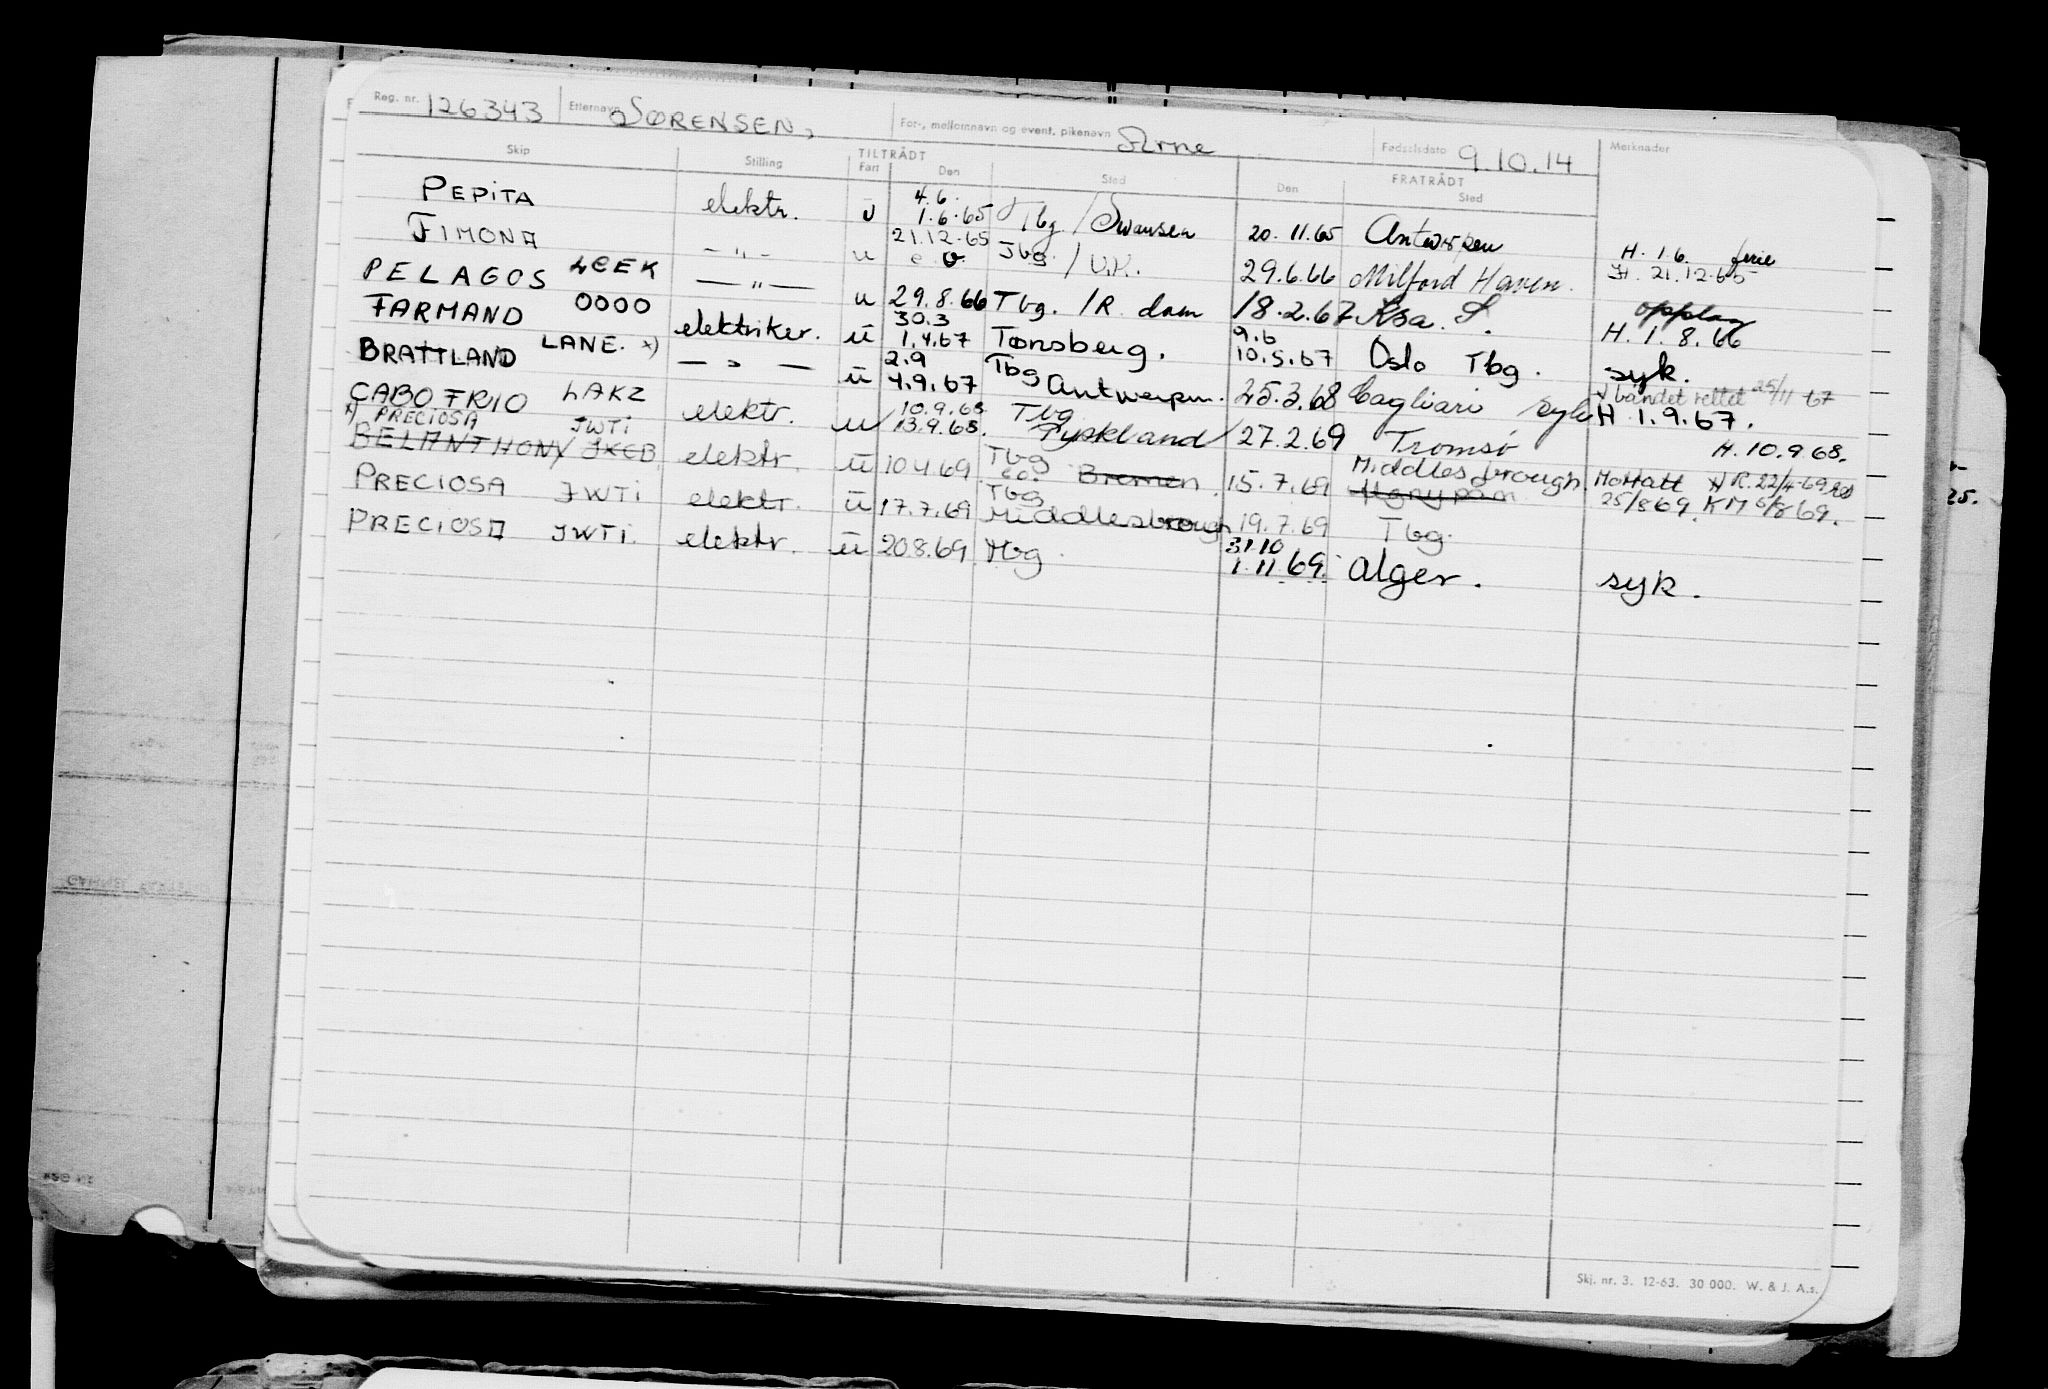 Reg. nr. 126343 Etternavn SØRENSEN, For-, mellomnavn og event. pikenavn Arne Fødselsdato 9.10.14 Merknader
Skip Stilling TILTRÅDT Fart Den Sted FRATRÅDT Den Sted
PEPITA elektr. u 4.6. 1.6.65 Tbg. / Swansea 20.11.65 Antwerpen H. 1.6. ferie
FIMONA — " — u 21.12.65 Tbg. / U.K. 29.6.66 Milford Haven. H. 21.12.65
PELAGOS LCEK — " — u 29.8.66 Tbg. / R.dam 18.2.67 opplag H. 1.8.66
FARMAND OOOO elektriker. ü 30.3 1.4.67 Tønsberg. 9.6 10.5.67 Oslo Tbg. syk.
BRATTLAND LANE. x) — " — ü 2.9 4.9.67 Tbg Antwerpen. 25.3.68 Cagliari syk H 1.9.67. båndet rettet 25/11-67
CABO FRIO LAKZ elektr. u 10.9.68 13.9.68. Tbg Tyskland 27.2.69 Tromsø H. 10.9.68.
x) PRECIOSA JWTI
BELANTHONY JXCB elektr. ü 10.4.69 Tbg Bremen. 15.7.69 Middlesbrough. Mottatt R. 22/4-69
PRECIOSA JWTI elektr. ü 17.7.69 Tbg Middlesbrough 19.7.69 Tbg. 25/869. KM 5/8 69.
PRECIOSA JWTI elektr. ü 20.8.69 Tbg. 31.10 1.11.69. Alger. syk.
25.
Skj. nr. 3. 12-63. 30 000. W. & J. A.s.